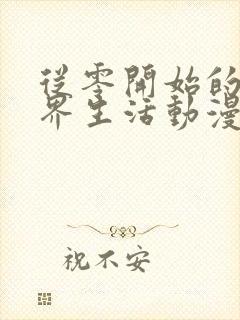 從零開始的
界生活動漫
祝不安